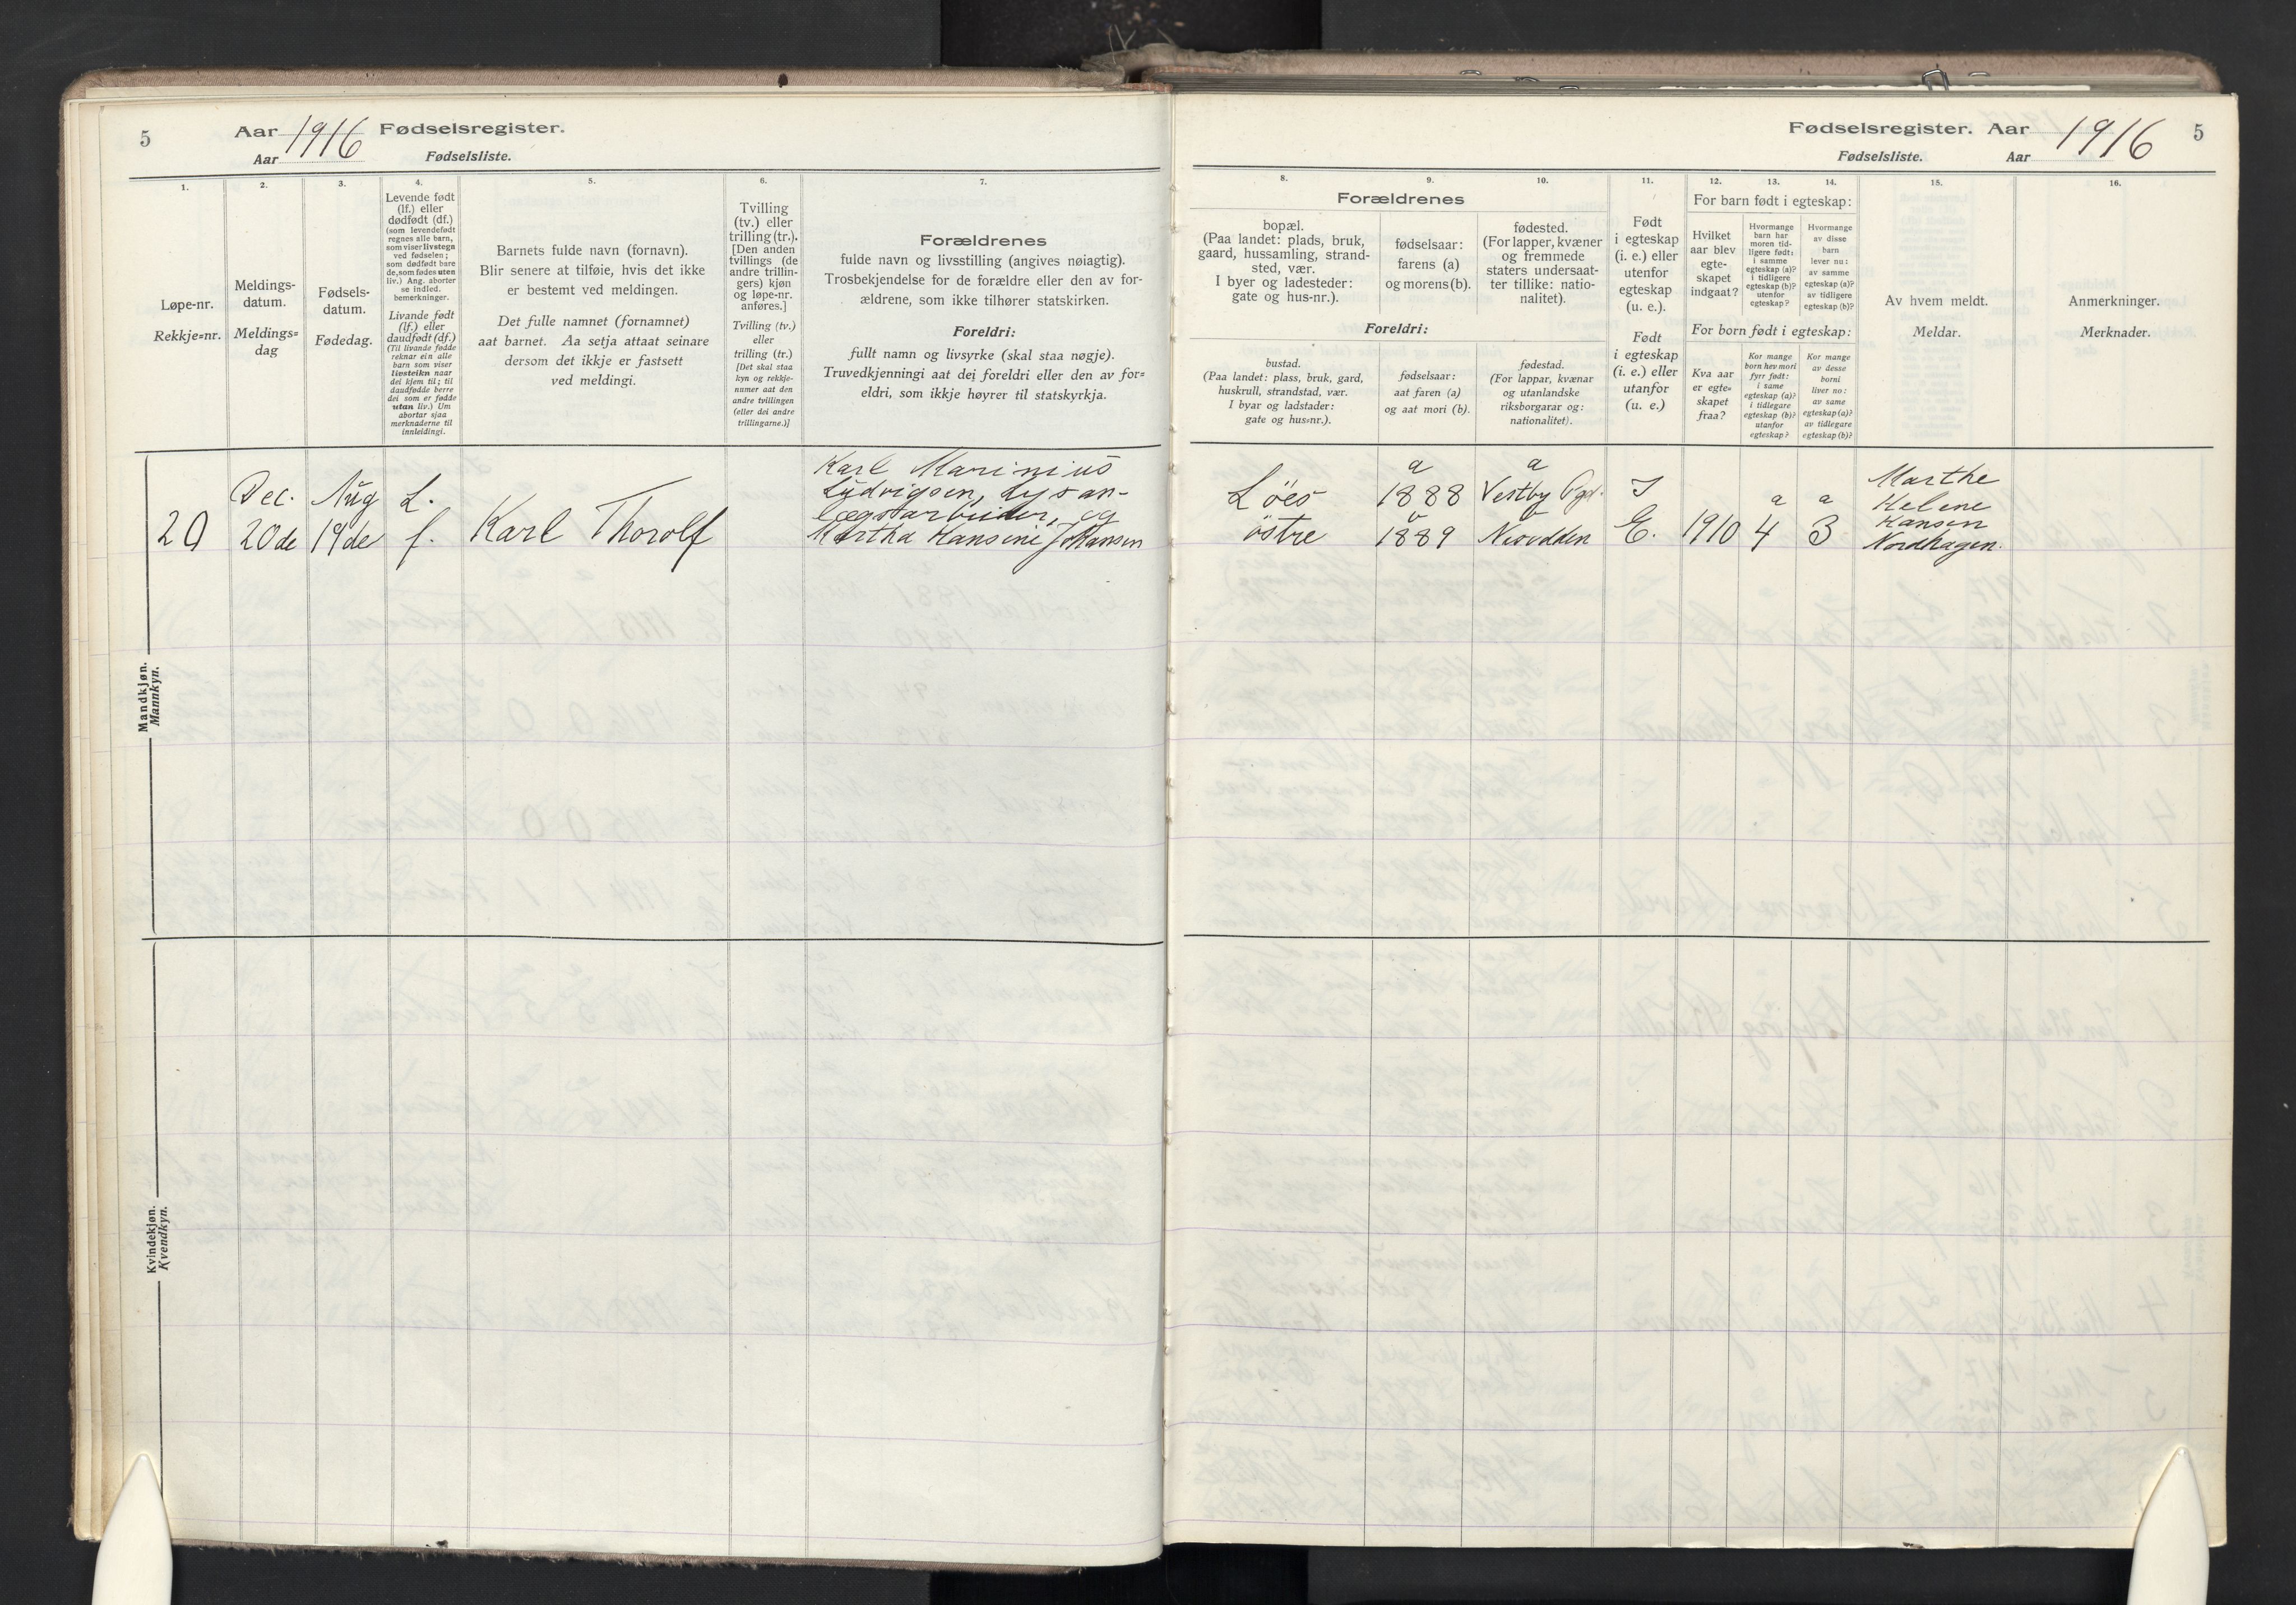 5
Aar 1916 Fødselsregister.
Aar Fødselsliste.
1.
2.
3.
4.
5.
6.
7.
Løpe-nr.
Rekkje=nr.
Meldings-
datum.
Meldings=
dag
Fødsels-
datum.
Fødedag.
Levende født
(lf.) eller
dødfødt (df.)
(som levendefødt
regnes alle barn,
som viser livstegn
ved fødselen;
som dødfødt bare
de, som fødes uten
liv.) Ang. aborter
se indled.
bemerkninger.
Livande født
(lf.) eller
daudfødt (df.)
(Til livande fødde
reknar ein alle
barn som viser
livsteikn naar
dei kjem til; til
daudfødde berre
dei som er fødde
utan liv.) Um
abortar sjaa
merknaderne til
innleidingi.
Barnets fulde navn (fornavn).
Blir senere at tilføie, hvis det ikke
er bestemt ved meldingen.
Det fulle namnet (fornamnet)
aat barnet. Aa setja attaat seinare
dersom det ikkje er fastsett
ved meldingi.
Tvilling
(tv.) eller
trilling (tr.).
[Den anden
tvillings (de
andre trillin-
gers) kjøn
og løpe-nr.
anføres.]
Tvilling (tv.)
eller
trilling (tr.)
[Det skal staa
kyn og rekkje-
numer aat den
andre tvillingen
(eller dei andre
trillingarne.)]
Forældrenes
fulde navn og livsstilling (angives nøiagtig).
Trosbekjendelse for de forældre eller den av for-
ældrene, som ikke tilhører statskirken.
Foreldri:
fullt namn og livsyrke (skal staa nøgje).
Truvedkjenningi aat dei foreldri eller den av for=
eldri, som ikkje høyrer til statskyrkja.
Mandkjøn.
Mannkyn.
20
Dec.
20de
Aug
19de
L.
f.
Karl Thorolf
Karl Marinius
Ludvigsen, Lysan-
lægsarbeider, og
Martha Hansine Johansen
Kvindekjøn.
Kvendkyn.
Fødselsregister. Aar 1916 5
Fødselsliste. Aar
8.
9.
10.
11.
12.
13.
14.
15.
16.
Forældrenes
bopæl.
(Paa landet: plads, bruk,
gaard, hussamling, strand-
sted, vær.
I byer og ladesteder:
gate og hus-nr.).
fødselsaar:
farens (a)
og morens (b).
fødested.
(For lapper, kvæner
og fremmede
staters undersaat-
ter tillike: natio-
nalitet).
Foreldri:
bustad.
(Paa landet: plass, bruk, gard,
huskrull, strandstad, vær.
I byar og ladstader:
gate og hus=nr.).
fødselsaar:
aat faren (a)
og aat mori (b).
fødestad.
(For lappar, kvænar
og utanlandske
riksborgarar og:
nationalitet).
Født
i egteskap
(i. e.) eller
utenfor
egteskap
(u. e.).
Født
i egteskap
(i. e.) eller
utanfor
(u. e.)
For barn født i egteskap:
Hvilket
aar blev
egte-
skapet
indgaat?
Hvormange
barn har
moren tid-
ligere født:
i samme
egteskap (a)?
i tidligere
egteskap (b)?
utenfor
egteskap?
Hvormange
av disse
barn
lever nu:
av samme
egteskap (a)?
av tidligere
egteskap (b)?
For born født i egteskap:
Kva aar
er egte=
skapet
fraa?
Kor mange
born hev mori
fyrr født:
i same
egteskap (a)?
i tidlegare
egteskap (b)?
utanfor
egteskap?
Kor mange
av desse
borni
liver no:
av same
egteskap (a)?
av tidlegare
egteskap (b)?
Av hvem meldt.
Meldar.
Anmerkninger.
Merknader.
Løes
østre
a
1888
1889
a
Vestby Pgd.
Nesodden
I
E.
1910
a
4
a
3
Marthe
Helene
Hansen
Nordhagen.